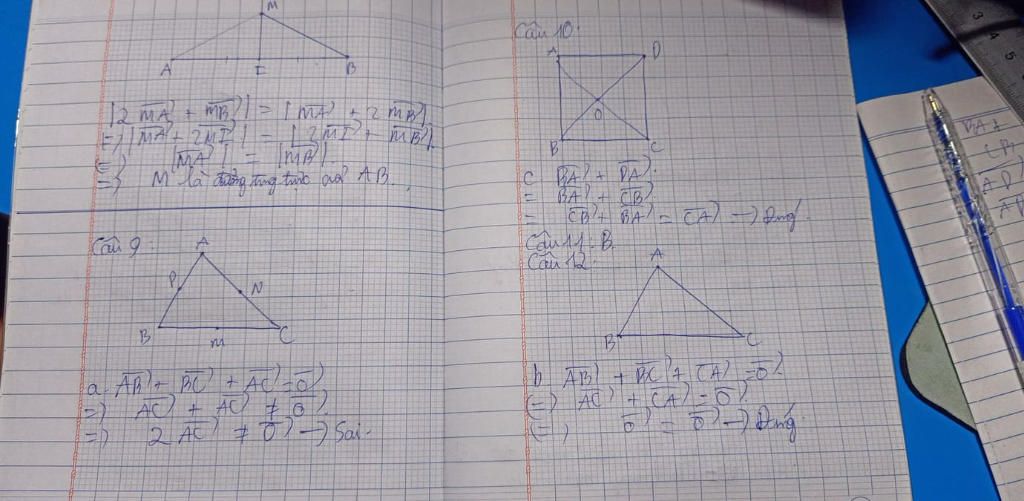 M
A I B
|2 MA + MB| = |MA + 2 MB|
=) |MA + 2MI| = |2MI + MB|
(=) |MA| = |MB|
=) M là đường trung trực của AB.
Câu 9:
A
P N
B M C
a. AB + BC + AC = 0
=) AC + AC ≠ 0
=) 2 AC ≠ 0 → Sai.
Câu 10:
A D
O
B C
c BA + DA
= BA + CB
= CB + BA = CA → Đúng
Câu 11: B.
Câu 12:
A
B C
b. AB + BC + CA = 0
(=) AC + CA = 0
(=) 0 = 0 → Đúng
3
4